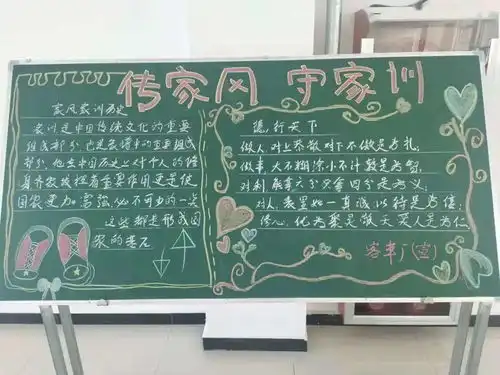 传家风 守家训
家风家训历史
家训是中国传统文化的重要
组成部分,也是家谱中的重要组成
部分,他在中国历史上对个人的修
身齐家发挥着重要作用更是使
国家更为。富强必不可少的一点
这些都是形成国
家的基石
德,行天下
做人,对上恭敬对下不傲是为礼;
做事,大不糊涂小不计较是为智;
对利,能拿六分只拿四分是为义;
对人,表里如一真诚以待是为信;
修心,优为聚是敬天爱人是为仁